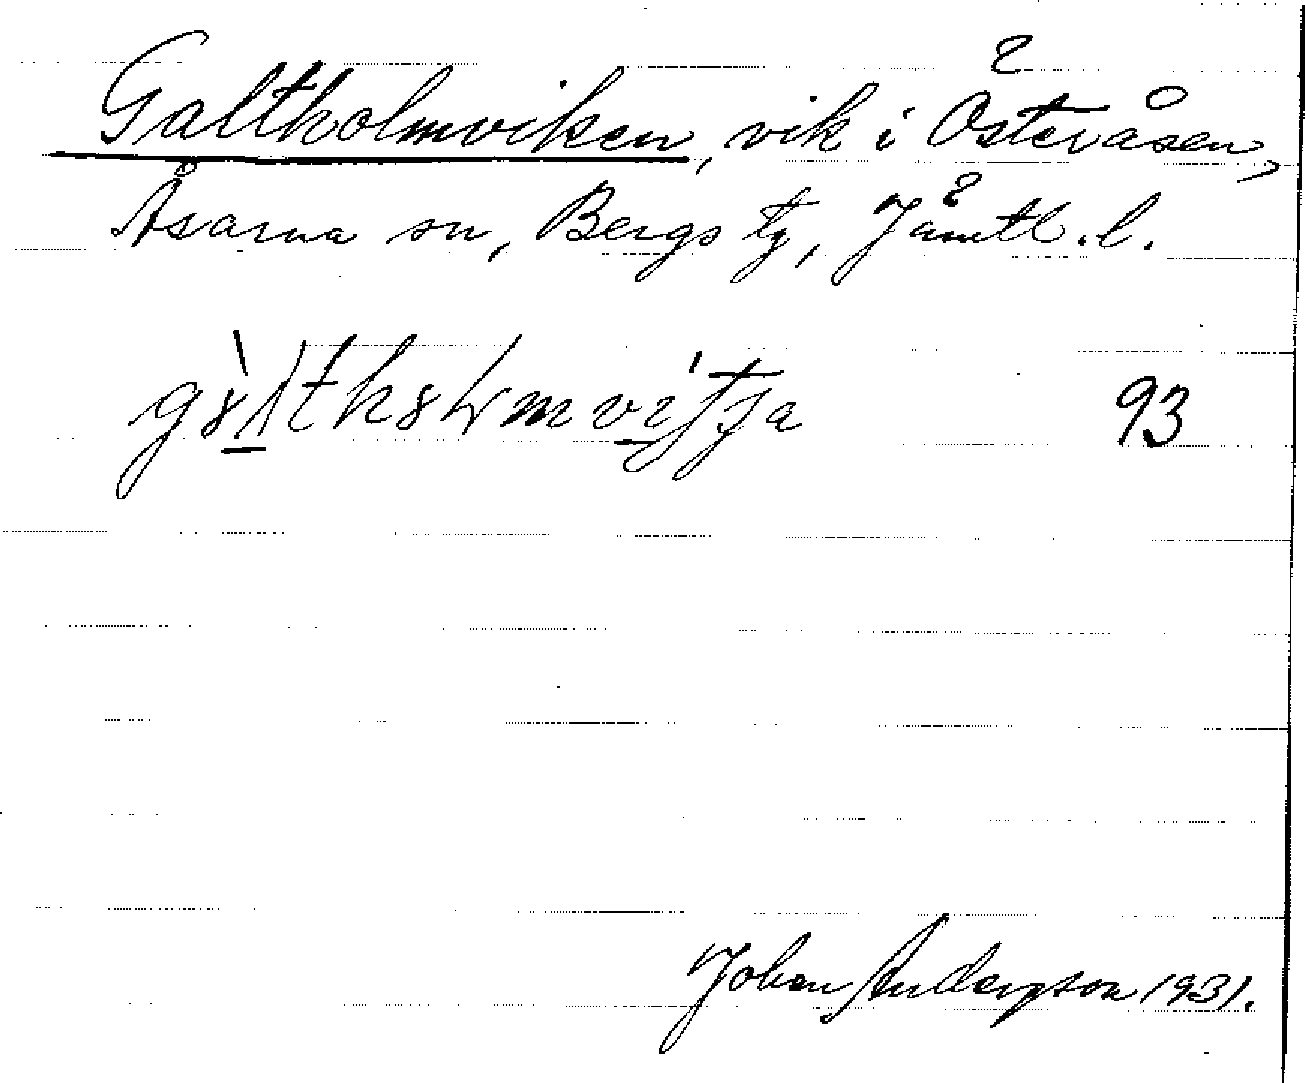 Galtholmviken, vik i Österåsen,
Åsarna sn, Bergs tg, Jämtl. l.
93
Johan Andersson 1931.